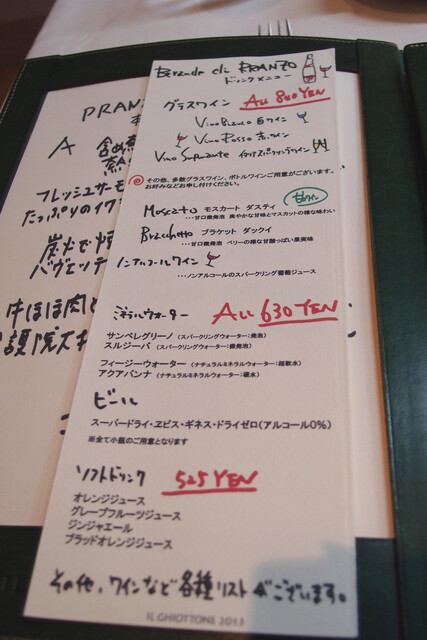 PRANZ
A
フレッシュサーモ
たっぷりのイク
炭火で焼
バヴェッテ
牛ほほ肉と
Bevande di PRANZO
ドリンクメニュー
グラスワイン ALL 840 YEN
Vino Bianco 白ワイン
Vino Rosso 赤ワイン
Vino Spumante イタリアスパークリングワイン
その他、多数グラスワイン、ボトルワインご用意がございます。
お好みなどお申し付けください。
甘口ワイン
Moscato モスカート ダスティ
…甘口微発泡 爽やかな甘味とマスカットの様な味わい
Brachetto ブラケット ダックイ
…甘口微発泡 ベリーの様な甘酸っぱい果実味
ノンアルコールワイン
…ノンアルコールのスパークリング葡萄ジュース
ミネラルウォーター ALL 630 YEN
サンペレグリーノ (スパークリングウォーター:発泡)
スルジーバ (スパークリングウォーター:微発泡)
フィージーウォーター (ナチュラルミネラルウォーター:超軟水)
アクアパンナ (ナチュラルミネラルウォーター:硬水)
ビール
スーパードライ・ヱビス・ギネス・ドライゼロ(アルコール0%)
※全て小瓶のご用意となります
ソフトドリンク 525 YEN
オレンジジュース
グレープフルーツジュース
ジンジャエール
ブラッドオレンジジュース
その他、ワインなど各種リストがございます。
IL GHIOTTONE 2013